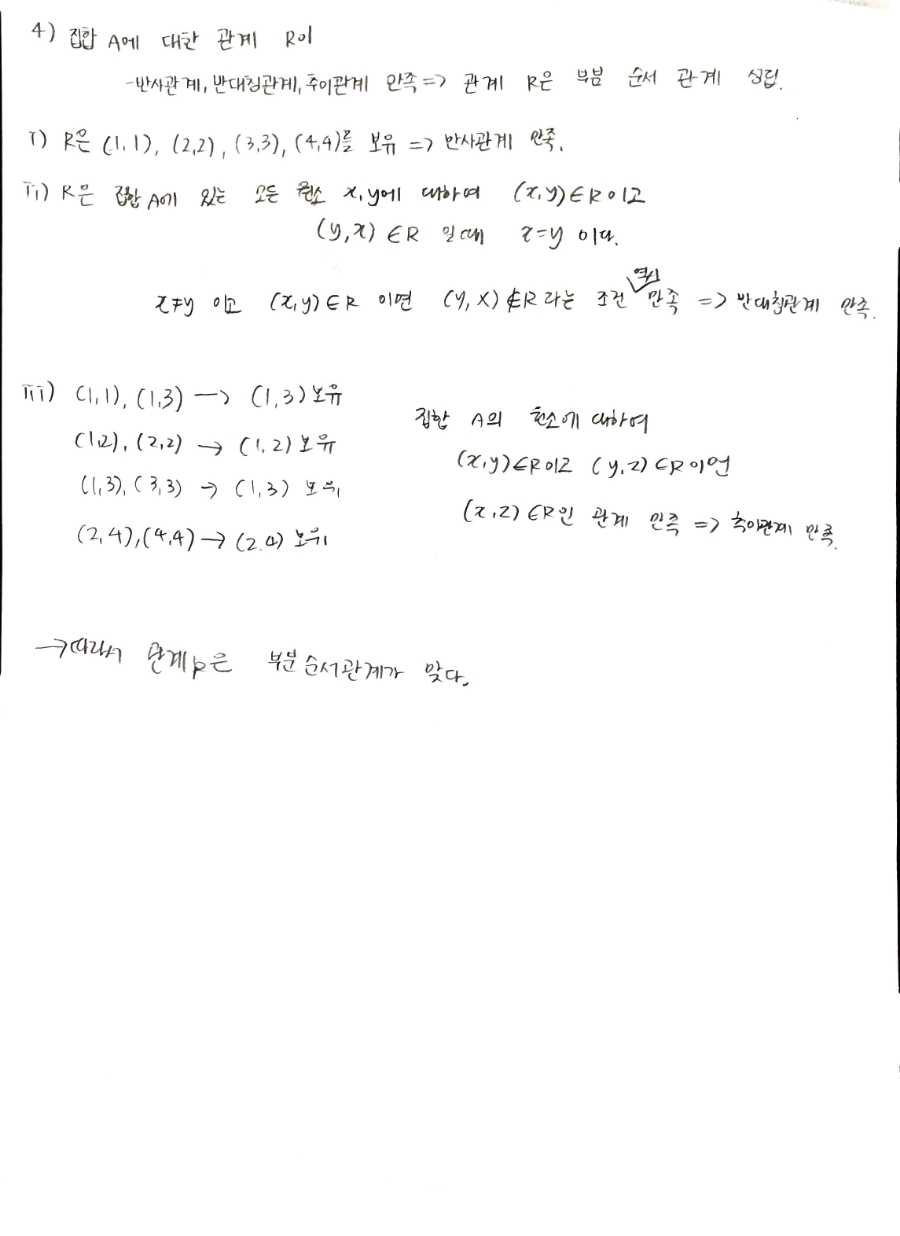 4) 집합 A에 대한 관계 R이
-반사관계, 반대칭관계, 추이관계 만족 => 관계 R은 부분 순서 관계 성립.
i) R은 (1,1), (2,2), (3,3), (4,4)를 보유 => 반사관계 만족.
ii) R은 집합 A에 있는 모든 원소 x,y에 대하여 (x,y)∈R이고
(y,x)∈R 일때 x=y 이다.
x≠y 이고 (x,y)∈R 이면 (y,x)∉R라는 조건 역시 만족 => 반대칭관계 만족.
iii) (1,1), (1,3) → (1,3) 보유
(1,2), (2,2) → (1,2) 보유
(1,3), (3,3) → (1,3) 보유
(2,4), (4,4) → (2,4) 보유
집합 A의 원소에 대하여
(x,y)∈R이고 (y,z)∈R이면
(x,z)∈R인 관계 만족 => 추이관계 만족.
→따라서 관계R은 부분순서관계가 맞다.